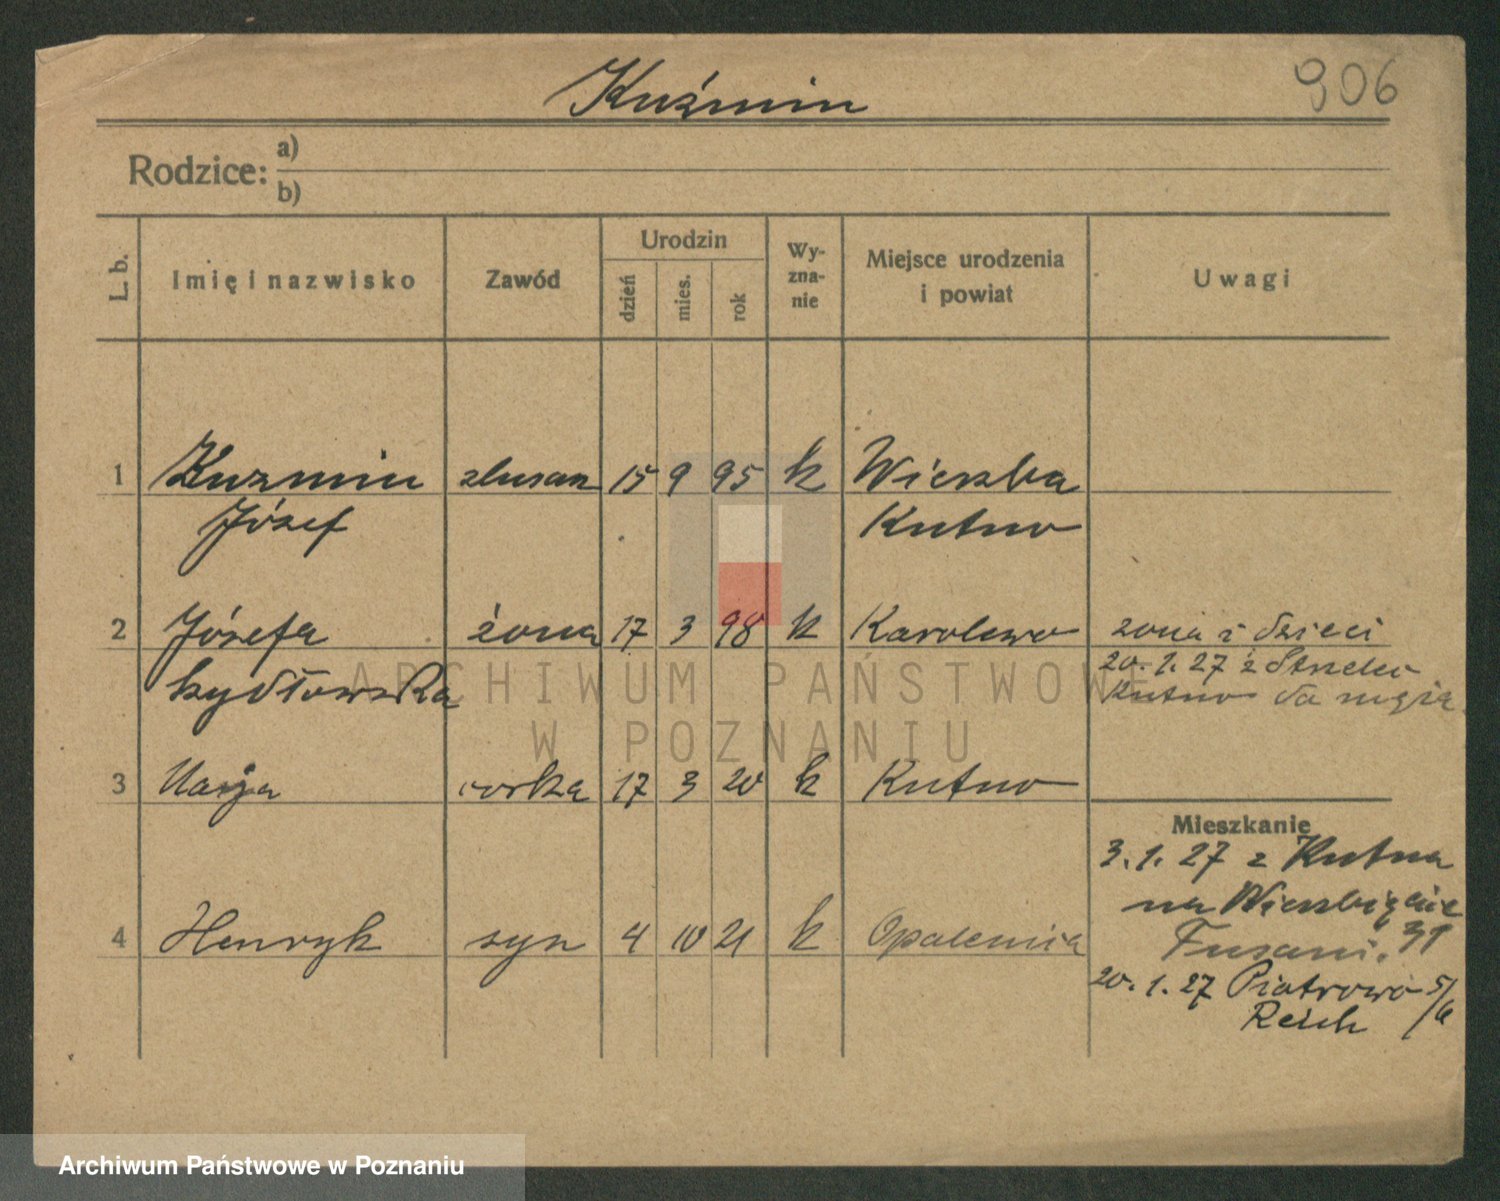 Kuźmin
906
Rodzice: a)
b)
L. b.
Imię i nazwisko
Zawód
Urodzin
dzień
mies.
rok
Wy-
zna-
nie
Miejsce urodzenia
i powiat
Uwagi
1 Kuzmin ślusarz 15 9 95 k Wierzba
Józef Kutno
2 Józefa żona 17 3 98 k Karolewo żona i dzieci
20. 1. 27 z
Kutno do męża
3 Marja córka 17 3 20 k Kutno
Mieszkanie
3. 1. 27 z Kutna
na Wierzbięcie
31
4 Henryk syn 4 10 21 k Opalenica
20. 1. 27 Piotrowo 5/6
Reich
ARCHIWUM PAŃSTWOWE
W POZNANIU
Archiwum Państwowe w Poznaniu